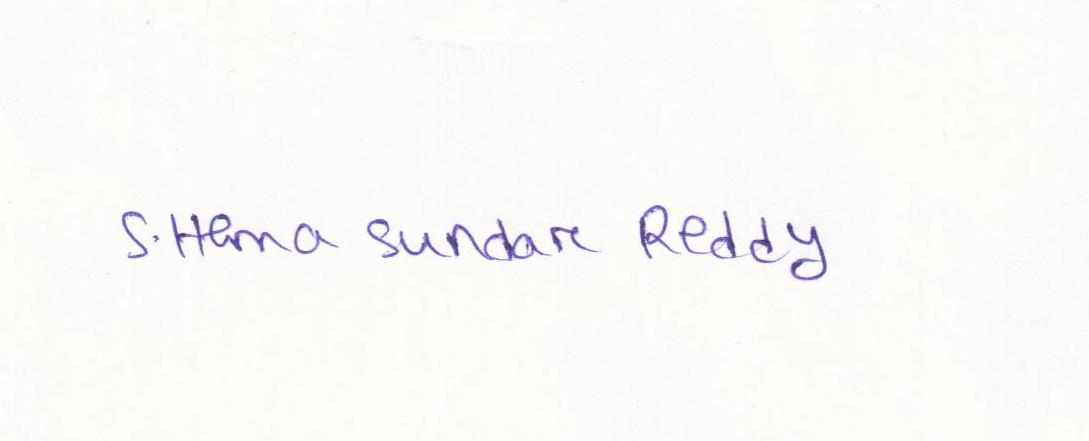 S. Hema Sundare Reddy